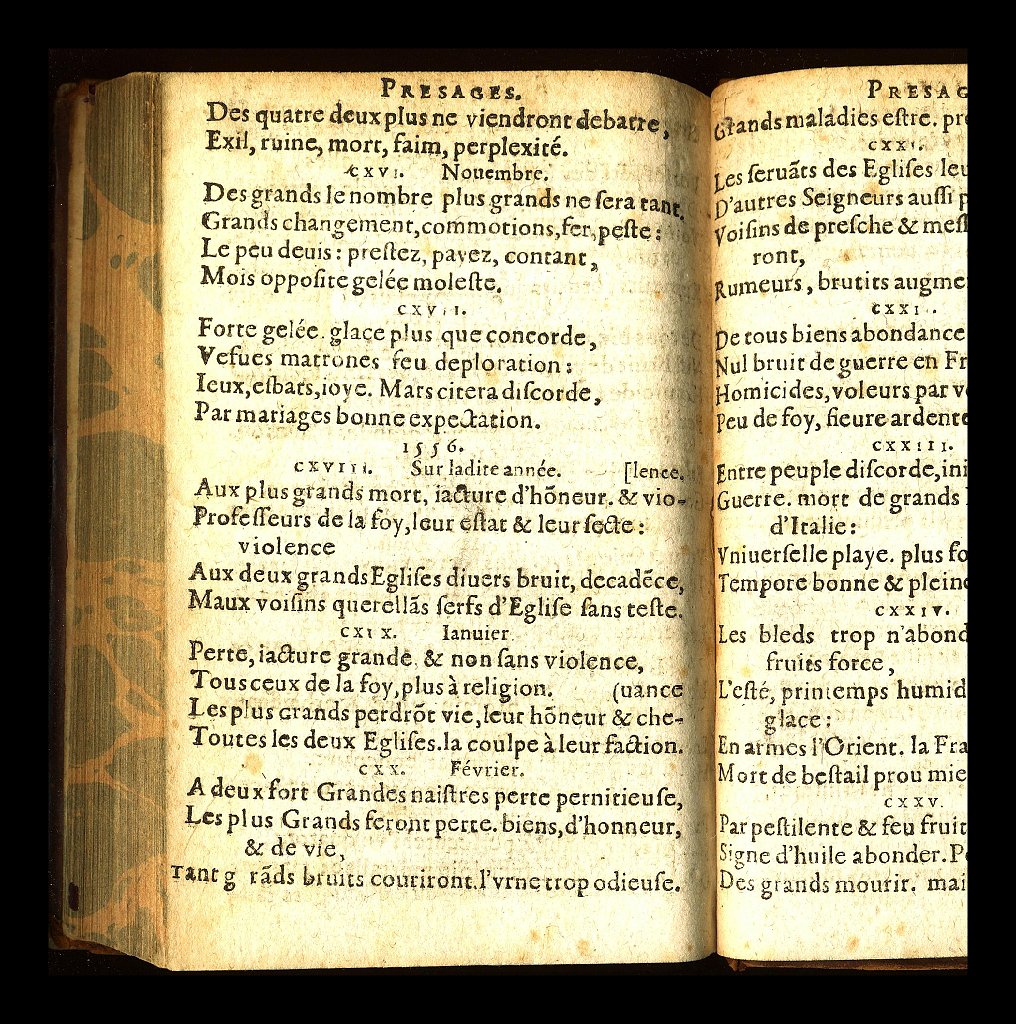 PRESAGES.
Des quatre deux plus ne viendront debatre,
Exil, ruine, mort, faim, perplexité.
CXVI. Nouembre.
Des grands le nombre plus grands ne ſera tant.
Grands changement, commotions, fer, peſte:
Le peu deuis: preſtez, payez, contant,
Mois oppoſite gelée moleſte.
CXVII.
Forte gelée. glace plus que concorde,
Vefues matrones feu deploration:
Ieux, eſbats, ioye. Mars citera diſcorde,
Par mariages bonne expectation.
1556.
CXVIII. Sur ladite année. [lence.
Aux plus grands mort, iacture d'hõneur. & vio-
Profeſſeurs de la foy, leur eſtat & leur ſecte:
violence
Aux deux grands Egliſes diuers bruit, decadẽce,
Maux voiſins querellãs ſerfs d'Egliſe ſans teſte.
CXIX. Ianuier
Perte, iacture grande. & non ſans violence,
Tous ceux de la foy, plus à religion. (uance
Les plus Grands perdrõt vie, leur hõneur & che-
Toutes les deux Egliſes. la coulpe à leur faction.
CXX. Février.
A deux fort Grandes naiſtres perte pernitieuſe,
Les plus Grands feront perte. biens, d'honneur,
& de vie,
Tant g rãds bruits couriront. l'vrne trop odieuſe.
PRESAG
Grands maladies eſtre. pre
CXXI.
Les ſeruãts des Egliſes leu
D'autres Seigneurs auſſi p
Voiſins de preſche & meſſ
ront,
Rumeurs, brutits augme
CXXI.
De tous biens abondance
Nul bruit de guerre en Fr
Homicides, voleurs par v
Peu de foy, fieure ardente
CXXIII.
Entre peuple diſcorde, ini
Guerre. mort de grands
d'Italie:
Vniuerſelle playe. plus fo
Tempore bonne & pleine
CXXIV.
Les bleds trop n'abond
fruits force,
L'eſté, printemps humid
glace:
En armes l'Orient. la Fra
Mort de beſtail prou mie
CXXV.
Par peſtilente & feu fruit
Signe d'huile abonder. P
Des grands mourir. mai